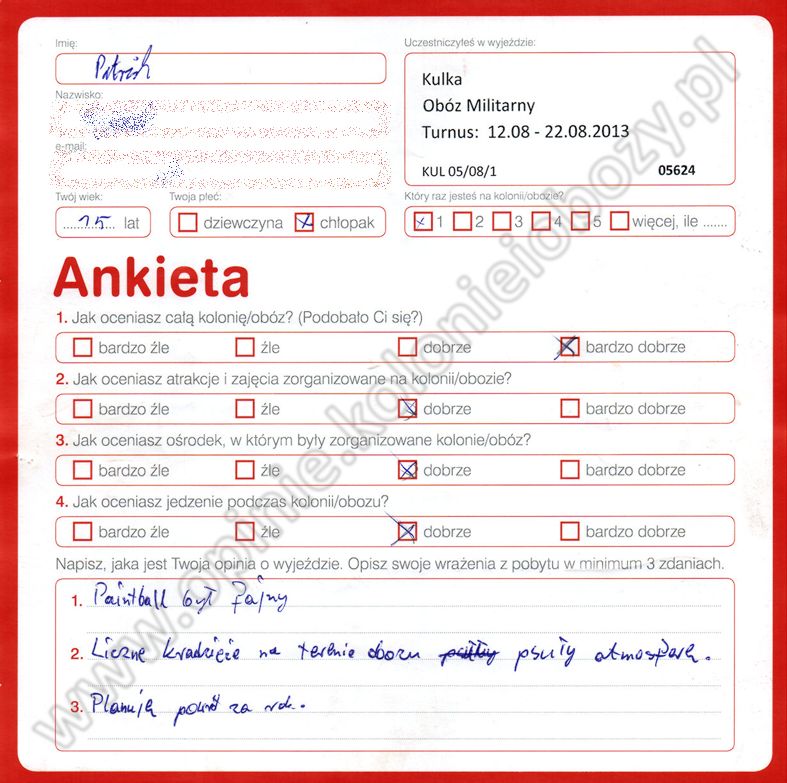 Imię:
Patryk
Uczestniczyłeś w wyjeździe:
Kulka
Obóz Militarny
Turnus: 12.08 - 22.08.2013
KUL 05/08/1
05624
Nazwisko:
e-mail:
Twój wiek:
15 lat
Twoja płeć:
dziewczyna chłopak
Który raz jesteś na kolonii/obozie?
1 2 3 4 5 więcej, ile .......
Ankieta
1. Jak oceniasz całą kolonię/obóz? (Podobało Ci się?)
bardzo źle źle dobrze bardzo dobrze
2. Jak oceniasz atrakcje i zajęcia zorganizowane na kolonii/obozie?
bardzo źle źle dobrze bardzo dobrze
3. Jak oceniasz ośrodek, w którym były zorganizowane kolonie/obóz?
bardzo źle źle dobrze bardzo dobrze
4. Jak oceniasz jedzenie podczas kolonii/obozu?
bardzo źle źle dobrze bardzo dobrze
Napisz, jaka jest Twoja opinia o wyjeździe. Opisz swoje wrażenia z pobytu w minimum 3 zdaniach.
1. Paintball był fajny
2. Liczne kradzieże na terenie obozu psuły atmosferę.
3. Planuję powrót za rok.
www.opinie.kolonieiobozy.pl